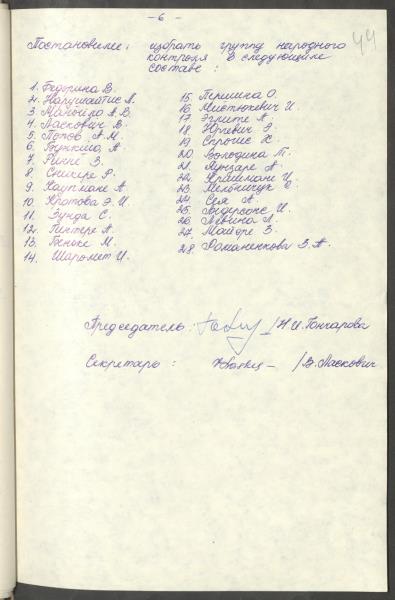 - 6 -
44
Постановили: избрать группу народного
контроля в следующем
составе:
1. Бедорина В
2. Нарушайтис А.
3. Манойло А.В.
4. Ласкович В.
5. Попов А.М.
6. А
7. Ринне З.
8. Сникере Р.
9. Кауплиане А.
10. Юратова Э. И
11. Зунда С.
12. Гинтере А.
13. М.
14. Шаромет И.
15. Першина О.
16. Мистюкевич И.
17. Эглите А.
18. Юревич Э.
19. Спрогис Х.
20. Володина Т.
21. Лунгаре А.
22. И.
23. Мельничук О.
24. Сея А.
25. Андерсоне И.
26. Левина Л.
27. Майоре З.
28. Романенкова З.А.
Председатель: /Н.И. Гончарова
Секретарь: /В. Ласкович